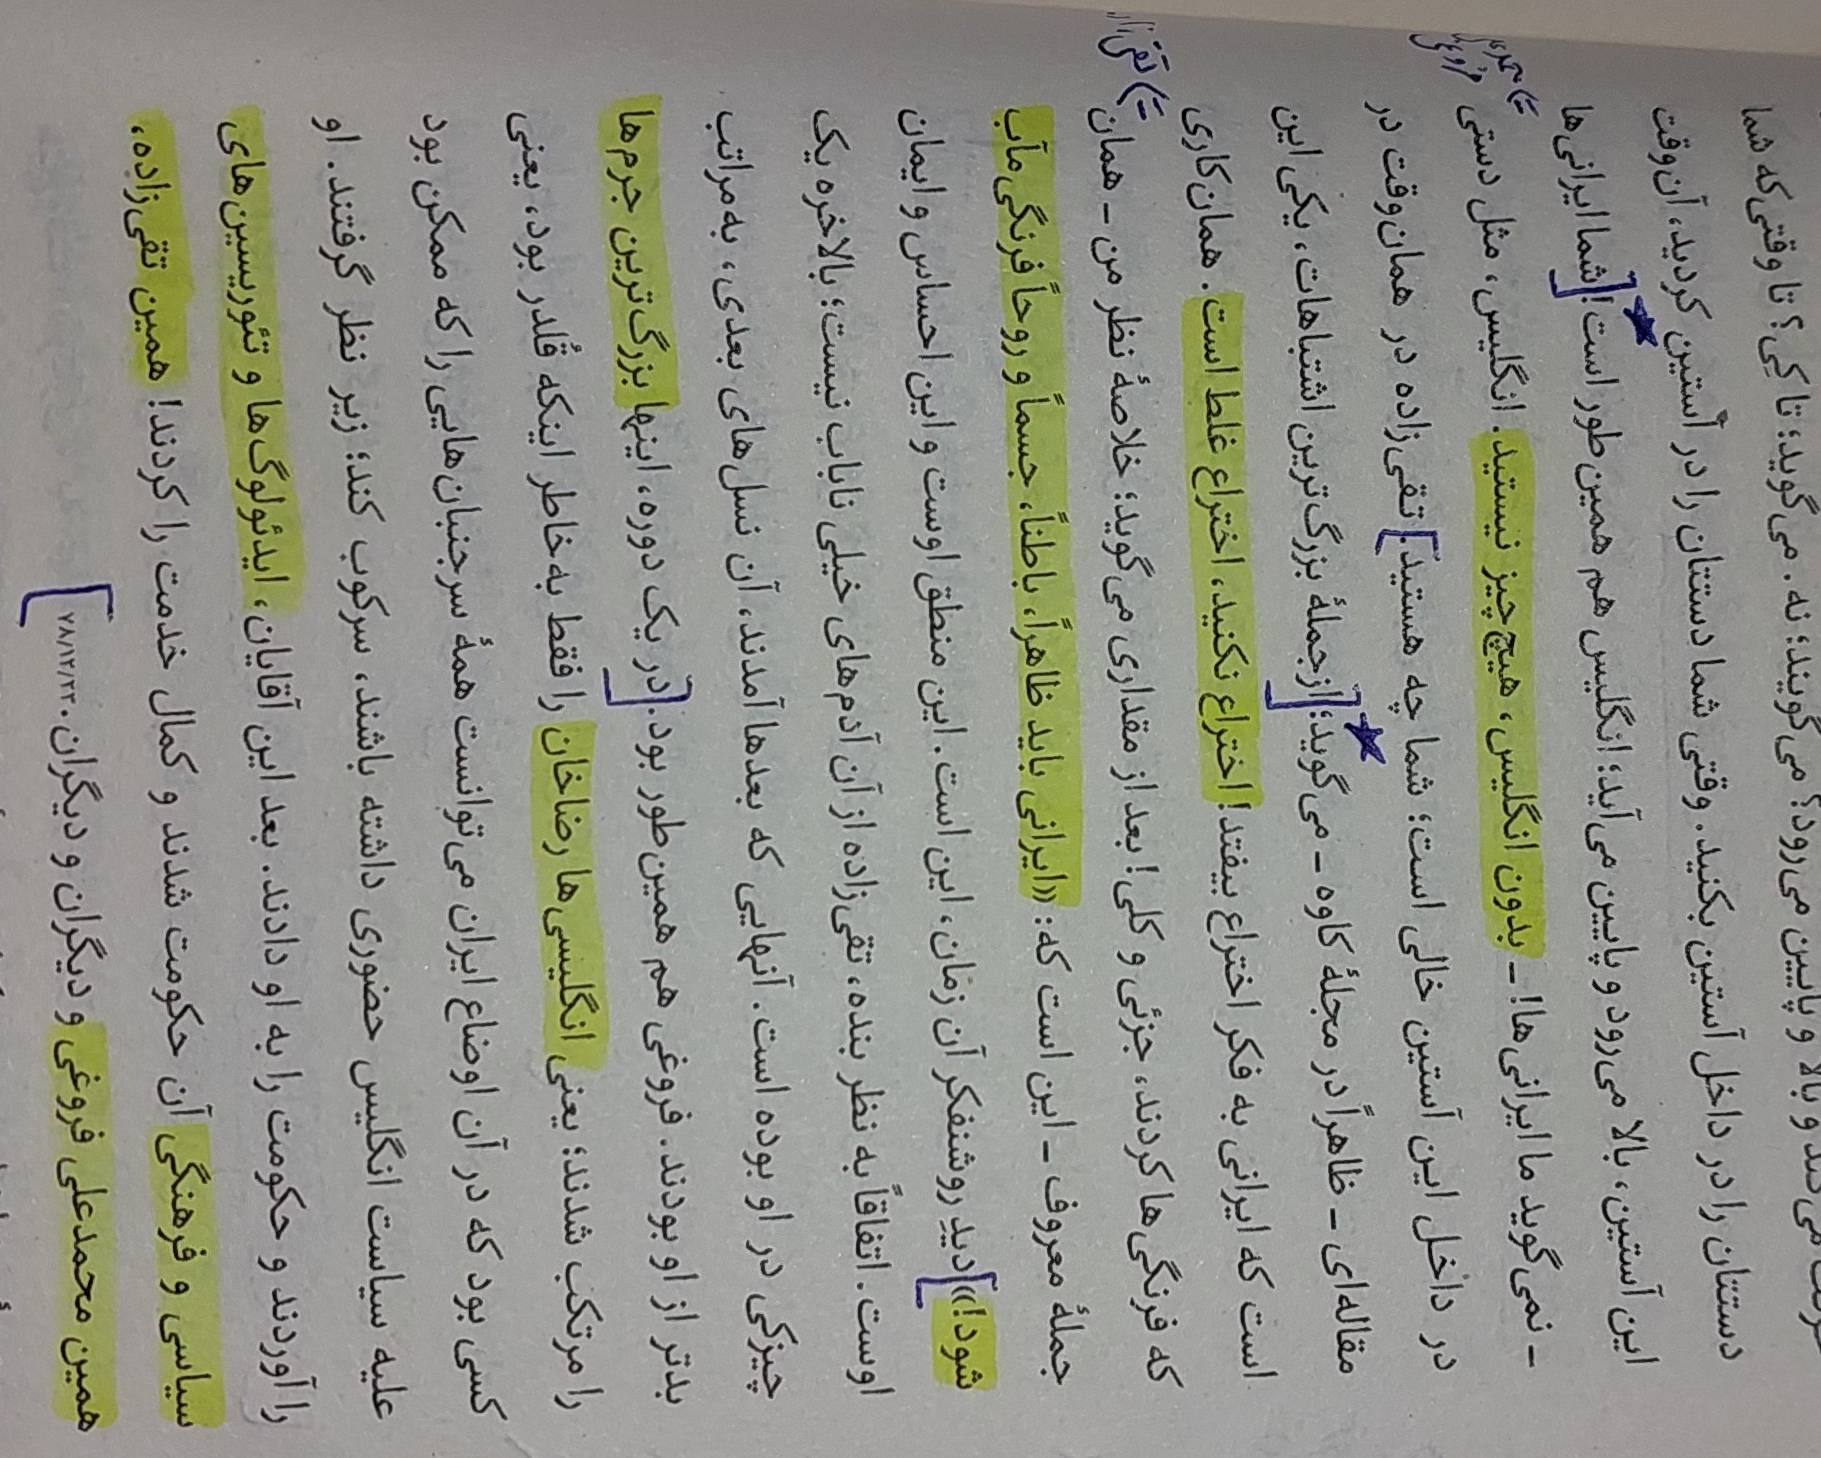 می‌کند و بالا و پایین می‌رود؟ می‌گویند؛ نه. می‌گوید؛ تا کِی؟ تا وقتی که شما
دستتان را در داخل آستین بکنید. وقتی شما دستتان را در آستین کردید، آن‌وقت
این آستین، بالا می‌رود و پایین می‌آید؛ انگلیس هم همین‌طور است! [شما ایرانی‌ها
- نمی‌گوید ما ایرانی‌ها! - بدون انگلیس، هیچ چیز نیستید. انگلیس، مثل دستی
در داخل این آستین خالی است؛ شما چه هستید.] تقی‌زاده در همان‌وقت در
مقاله‌ای - ظاهراً در مجلهٔ کاوه - می‌گوید؛ [ازجملهٔ بزرگ‌ترین اشتباهات، یکی این
است که ایرانی به فکر اختراع بیفتد! اختراع نکنید، اختراع غلط است. همان کاری
که فرنگی‌ها کردند، جزئی و کلی! بعد از مقداری می‌گوید؛ خلاصهٔ نظر من - همان
جملهٔ معروف - این است که: «ایرانی باید ظاهراً، باطناً، جسماً و روحاً فرنگی‌مآب
شود!»] دیدِ روشنفکر آن زمان، این است. این منطق اوست و این احساس و ایمان
اوست. اتفاقاً به نظر بنده، تقی‌زاده از آن آدم‌های خیلی ناباب نیست؛ بالاخره یک
چیزکی در او بوده است. آنهایی که بعدها آمدند، آن نسل‌های بعدی، به‌مراتب
بدتر از او بودند. فروغی هم همین‌طور بود. [در یک دوره، اینها بزرگ‌ترین جرم‌ها
را مرتکب شدند؛ یعنی انگلیسی‌ها رضاخان را فقط به‌خاطر اینکه قُلدر بود، یعنی
کسی بود که در آن اوضاع ایران می‌توانست همهٔ سرجنبان‌هایی را که ممکن بود
علیه سیاست انگلیس حضوری داشته باشند، سرکوب کند؛ زیر نظر گرفتند. او
را آوردند و حکومت را به او دادند. بعد این آقایان، ایدئولوگ‌ها و تئوریسین‌های
سیاسی و فرهنگی آن حکومت شدند و کمال خدمت را کردند! همین تقی‌زاده،
همین محمدعلی فروغی و دیگران و دیگران. ۷۸/۱۲/۲۳]